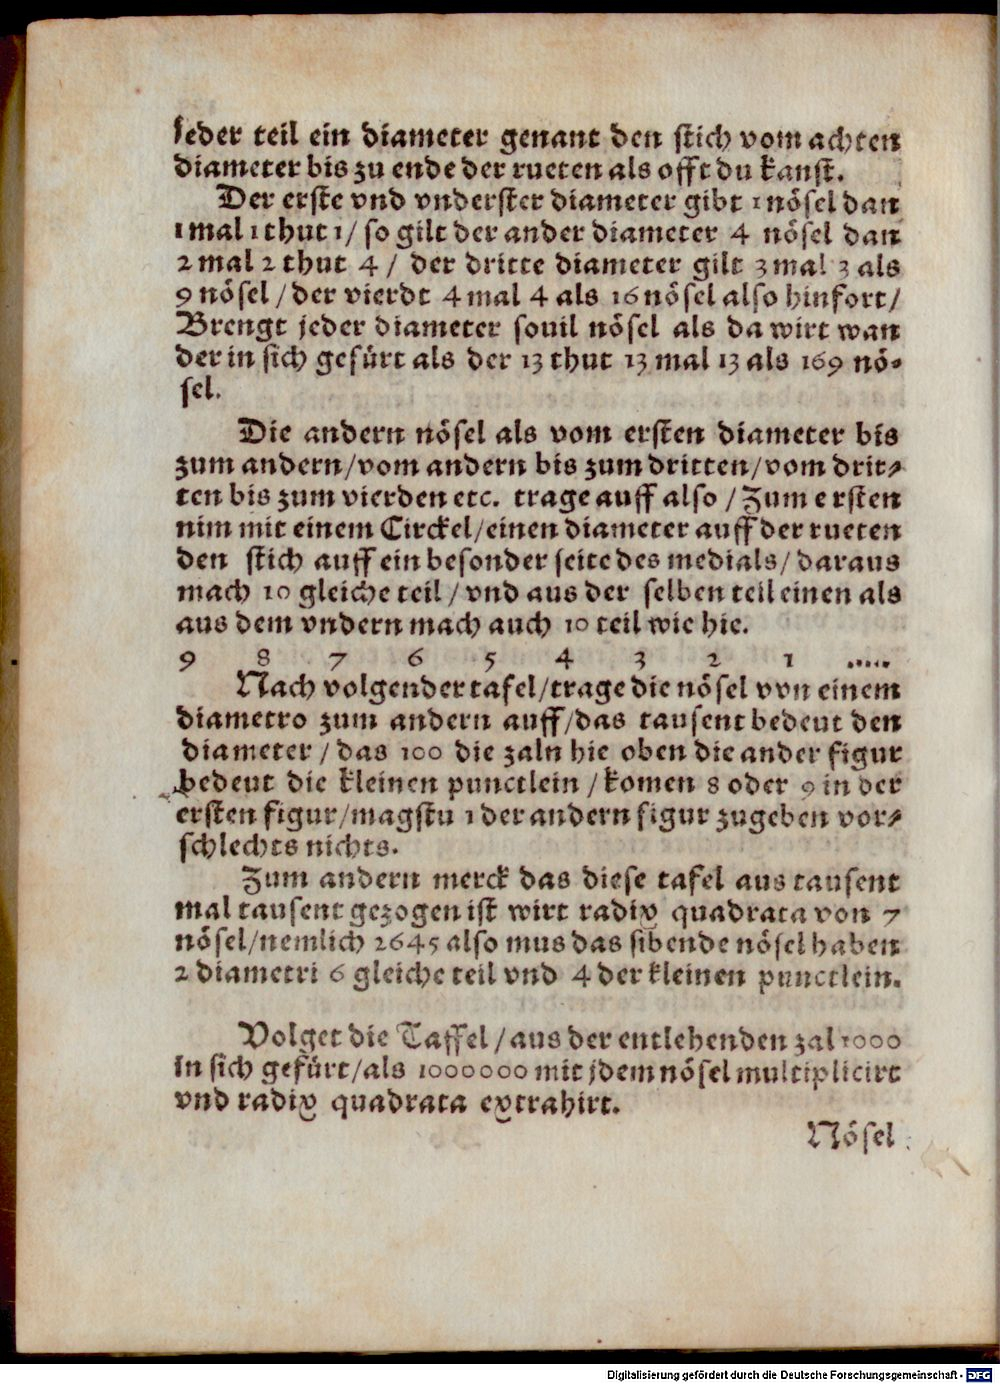 jeder teil ein diameter genant den stich vom achten
diameter bis zu ende der rueten als offt du kanst.
Der erste vnd vnderster diameter gibt 1 nösel dan
1 mal 1 thut 1/ so gilt der ander diameter 4 nösel dan
2 mal 2 thut 4 / der dritte diameter gilt 3 mal 3 als
9 nösel / der vierdt 4 mal 4 als 16 nösel also hinfort/
Brengt jeder diameter souil nösel als da wirt wan
der in sich gefürt als der 13 thut 13 mal 13 als 169 nö-
sel.
Die andern nösel als vom ersten diameter bis
zum andern/vom andern bis zum dritten/vom drit-
ten bis zum vierden etc. trage auff also / Zum ersten
nim mit einem Circkel/einen diameter auff der rueten
den stich auff ein besonder seite des medials/ daraus
mach 10 gleiche teil / vnd aus der selben teil einen als
aus dem vndern mach auch 10 teil wie hie.
9 8 7 6 5 4 3 2 1 .....
Nach volgender tafel/trage die nösel vvn einem
diametro zum andern auff/das tausent bedeut den
diameter / das 100 die zaln hie oben die ander figur
bedeut die kleinen punctlein / komen 8 oder 9 in der
ersten figur/magstu 1 der andern figur zugeben vor-
schlechts nichts.
Zum andern merck das diese tafel aus tausent
mal tausent gezogen ist wirt radix quadrata von 7
nösel/nemlich 2645 also mus das sibende nösel haben
2 diametri 6 gleiche teil vnd 4 der kleinen punctlein.
Volget die Taffel / aus der entlehenden zal 1000
in sich gefürt/als 1000000 mit jdem nösel multiplicirt
vnd radix quadrata extrahirt.
Nösel
Digitalisierung gefördert durch die Deutsche Forschungsgemeinschaft - DFG